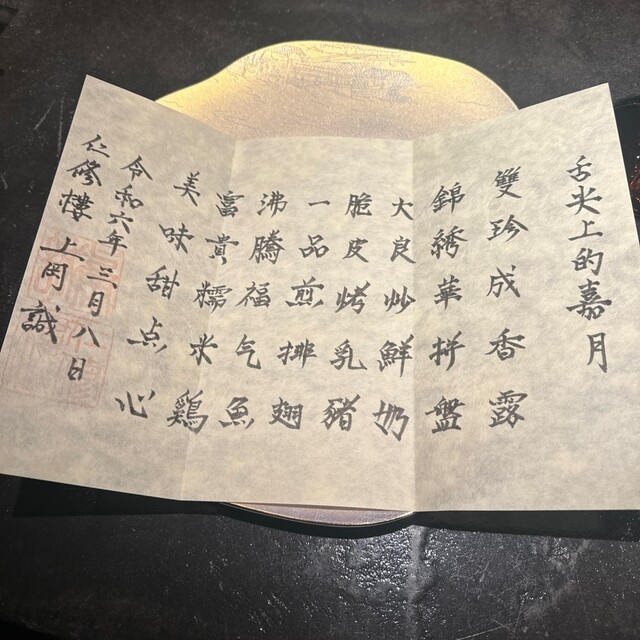 舌尖上的嘉月
雙珍成香露
錦綉華拼盤
大良炒鮮奶
脆皮烤乳豬
一品煎排翅
沸騰福气魚
富貴糯米鶏
美味甜点心
令和六年三月八日
仁修樓上岡誠